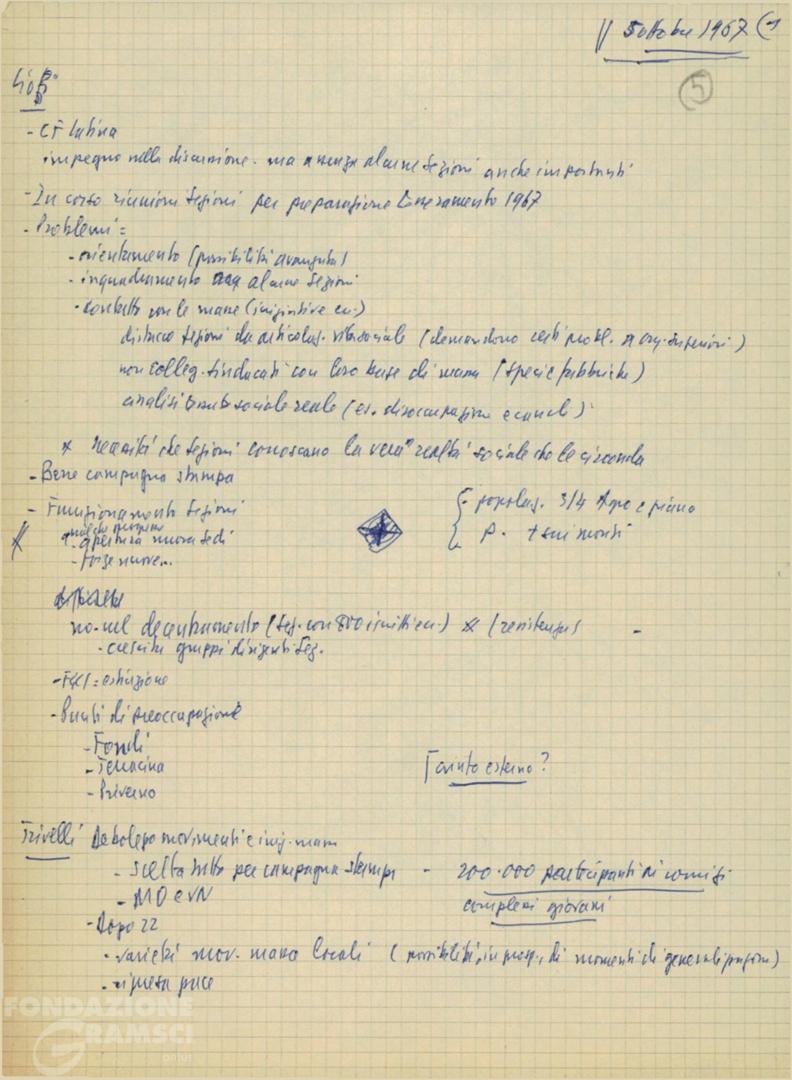 5 ottobre 1967 (1
5
- CF Latina
impegno nella discussione - ma assenza alcune sezioni anche importanti
- In corso riunioni sezioni per preparazione tesseramento 1967
- Problemi =
- orientamento (possibilità avanguardia)
- inquadramento alcune sezioni
- contatto con le masse (iniziative ecc)
distacco sezioni da articolaz. vita sociale (demandono certi probl. a org. superiori)
non colleg. sindacati con loro base di massa (specie fabbriche)
analisi sociale reale (es. disoccupazione e canali)
* necessità che sezioni conoscano la vera realtà sociale che le circonda
- Bene campagna stampa
- Funzionamento sezioni
- apertura nuova sedi
- forze nuove..
{ - popolaz. 3/4 Agro e piano
P. + sui monti
no - nel decentramento (sez. con 800 iscritti ecc.) * (resistenze)
- crescita gruppi dirigenti sez.
- FGCI = estinzione
- Punti di preoccupazione
- Fondi
- Terracina
- Priverno
Tarinto esterno?
Trivelli Debolezza movimenti e iniz. massa
- scelta tutto per campagna stampa - 200.000 partecipanti ai comizi
complessi giovani
- MO e VN
- Dopo 22
- varietà mov. massa locali (possibilità, in prosp., di momenti di generalizzazione)
- ripresa pace
FONDAZIONE
GRAMSCI
onlus